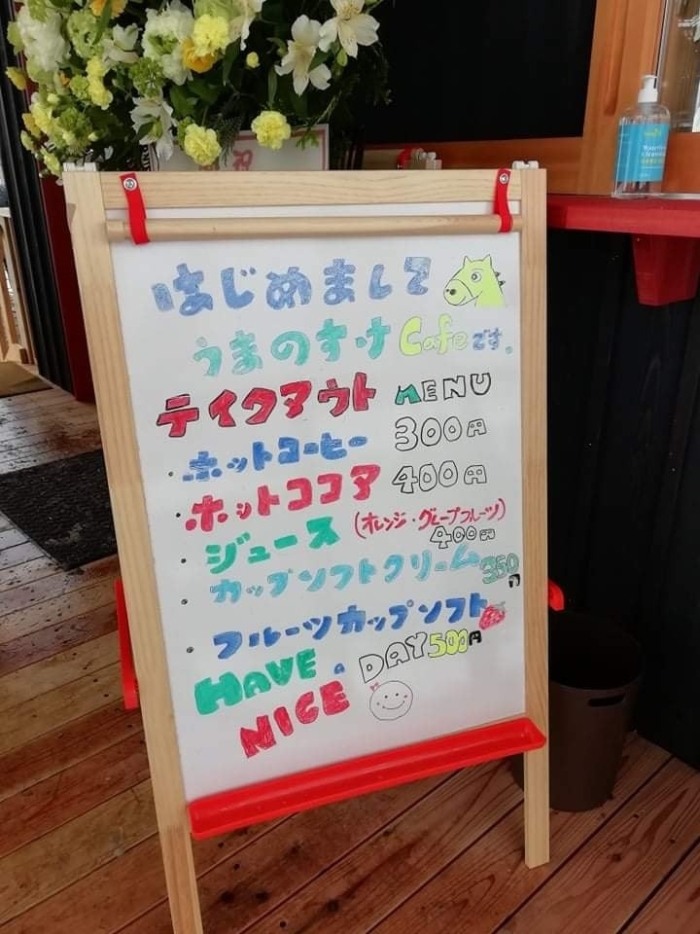 祝
はじめまして
うまのすけ Cafeです。
テイクアウト MENU
・ホットコーヒー 300円
・ホットココア 400円
・ジュース (オレンジ・グレープフルーツ) 400円
・カップソフトクリーム 350円
・フルーツカップソフト 500円
HAVE a DAY
NICE